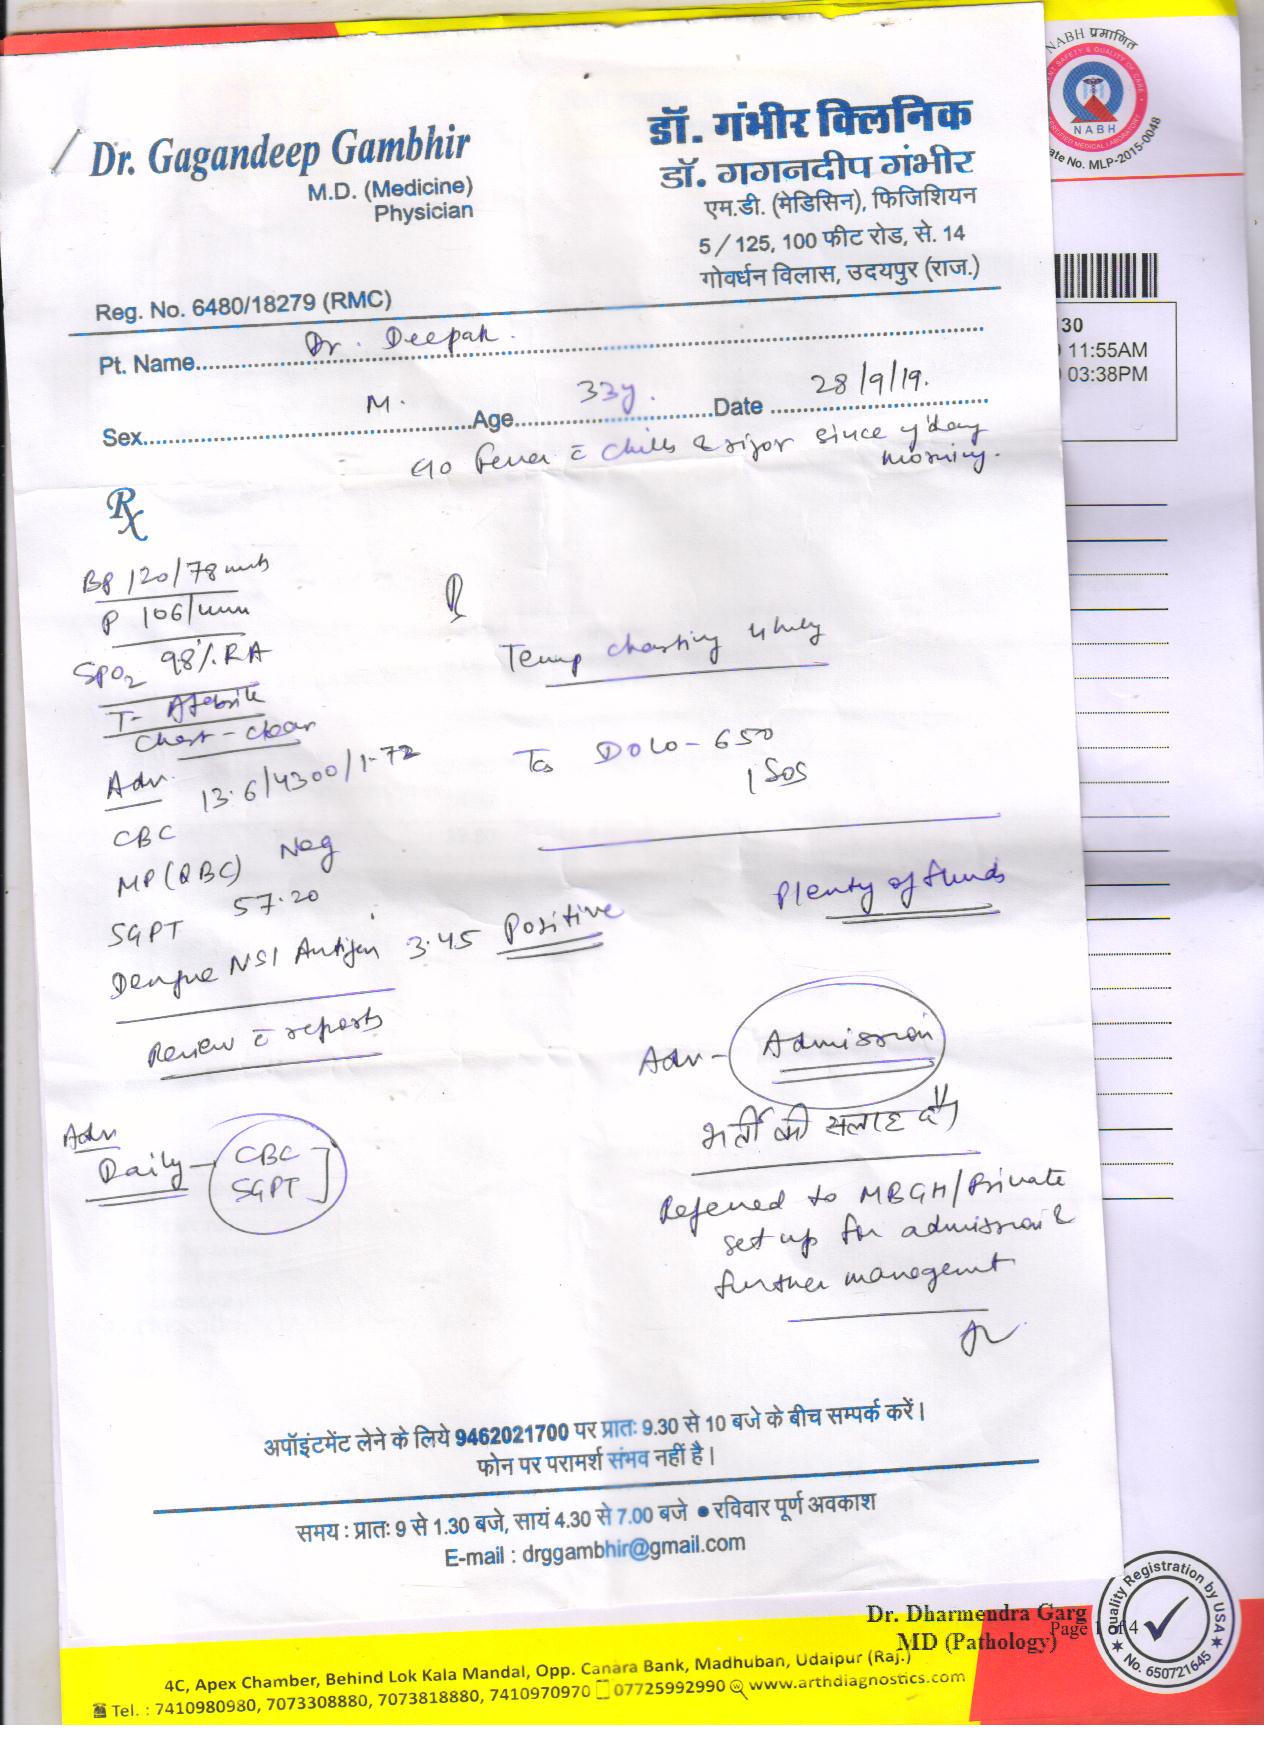 NABH प्रमाणित
NABH
MLP-2015-0048
Dr. Gagandeep Gambhir
M.D. (Medicine)
Physician
Reg. No. 6480/18279 (RMC)
डॉ. गंभीर क्लिनिक
डॉ. गगनदीप गंभीर
एम.डी. (मेडिसिन), फिजिशियन
5/125, 100 फीट रोड, से. 14
गोवर्धन विलास, उदयपुर (राज.)
30
11:55AM
03:38PM
Pt. Name Dr. Deepak.
Sex M. Age 33y. Date 28/9/19.
c/o Fever c̄ chills & rigor since y'day
morning.
Rx
BP 120/78
P 106/min
SPO2 98% RA
T- Afebrile
Chest - clear
Adv. 13.6/4300/1.72
CBC
MP (QBC) Neg
SGPT 57.20
Dengue NS1 Antigen 3.45 Positive
Review c̄ reports
Adv
Daily - CBC
SGPT
R
Temp charting 4 hrly
Tab DOLO-650
1 SOS
Plenty of fluids
Adv - Admission
भर्ती की सलाह दी
Referred to MBGH/Private
set up for admission &
further managemt
अपॉइंटमेंट लेने के लिये 9462021700 पर प्रातः 9.30 से 10 बजे के बीच सम्पर्क करें।
फोन पर परामर्श संभव नहीं है।
समय : प्रातः 9 से 1.30 बजे, सायं 4.30 से 7.00 बजे ● रविवार पूर्ण अवकाश
E-mail : drggambhir@gmail.com
Dr. Dharmendra Garg
MD (Pathology)
Page 1 of 4
Quality Registration by USA
No. 650721645
4C, Apex Chamber, Behind Lok Kala Mandal, Opp. Canara Bank, Madhuban, Udaipur (Raj.)
Tel. : 7410980980, 7073308880, 7073818880, 7410970970 07725992990 www.arthdiagnostics.com